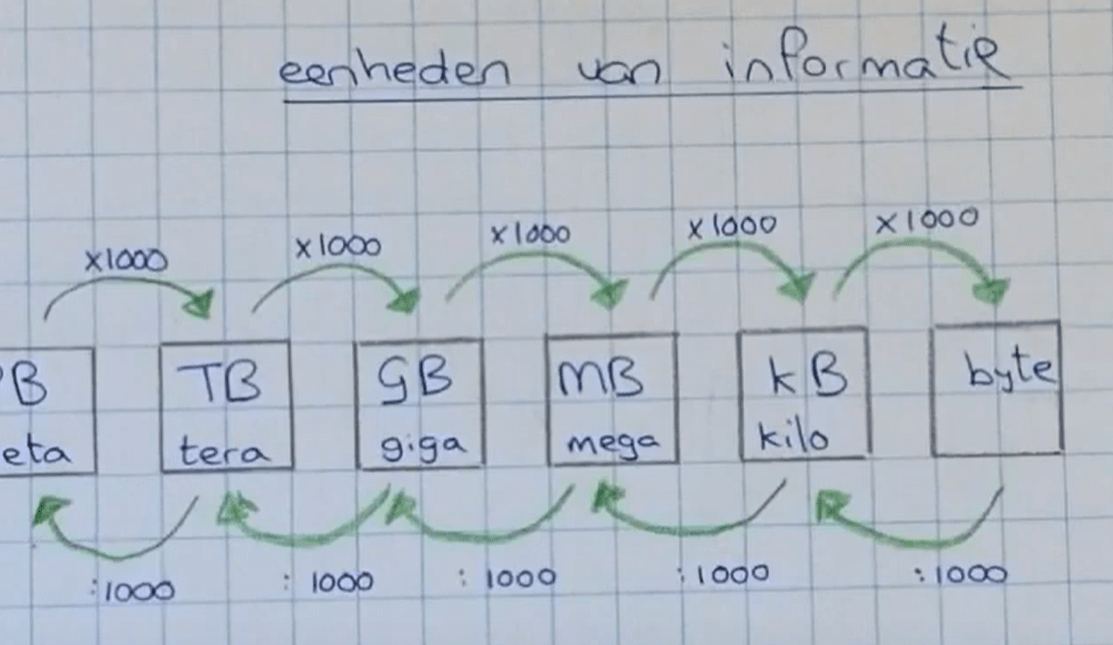 eenheden van informatie
x1000 x1000 x1000 x1000 x1000
B TB GB MB kB byte
eta tera giga mega kilo
:1000 : 1000 : 1000 :1000 :1000